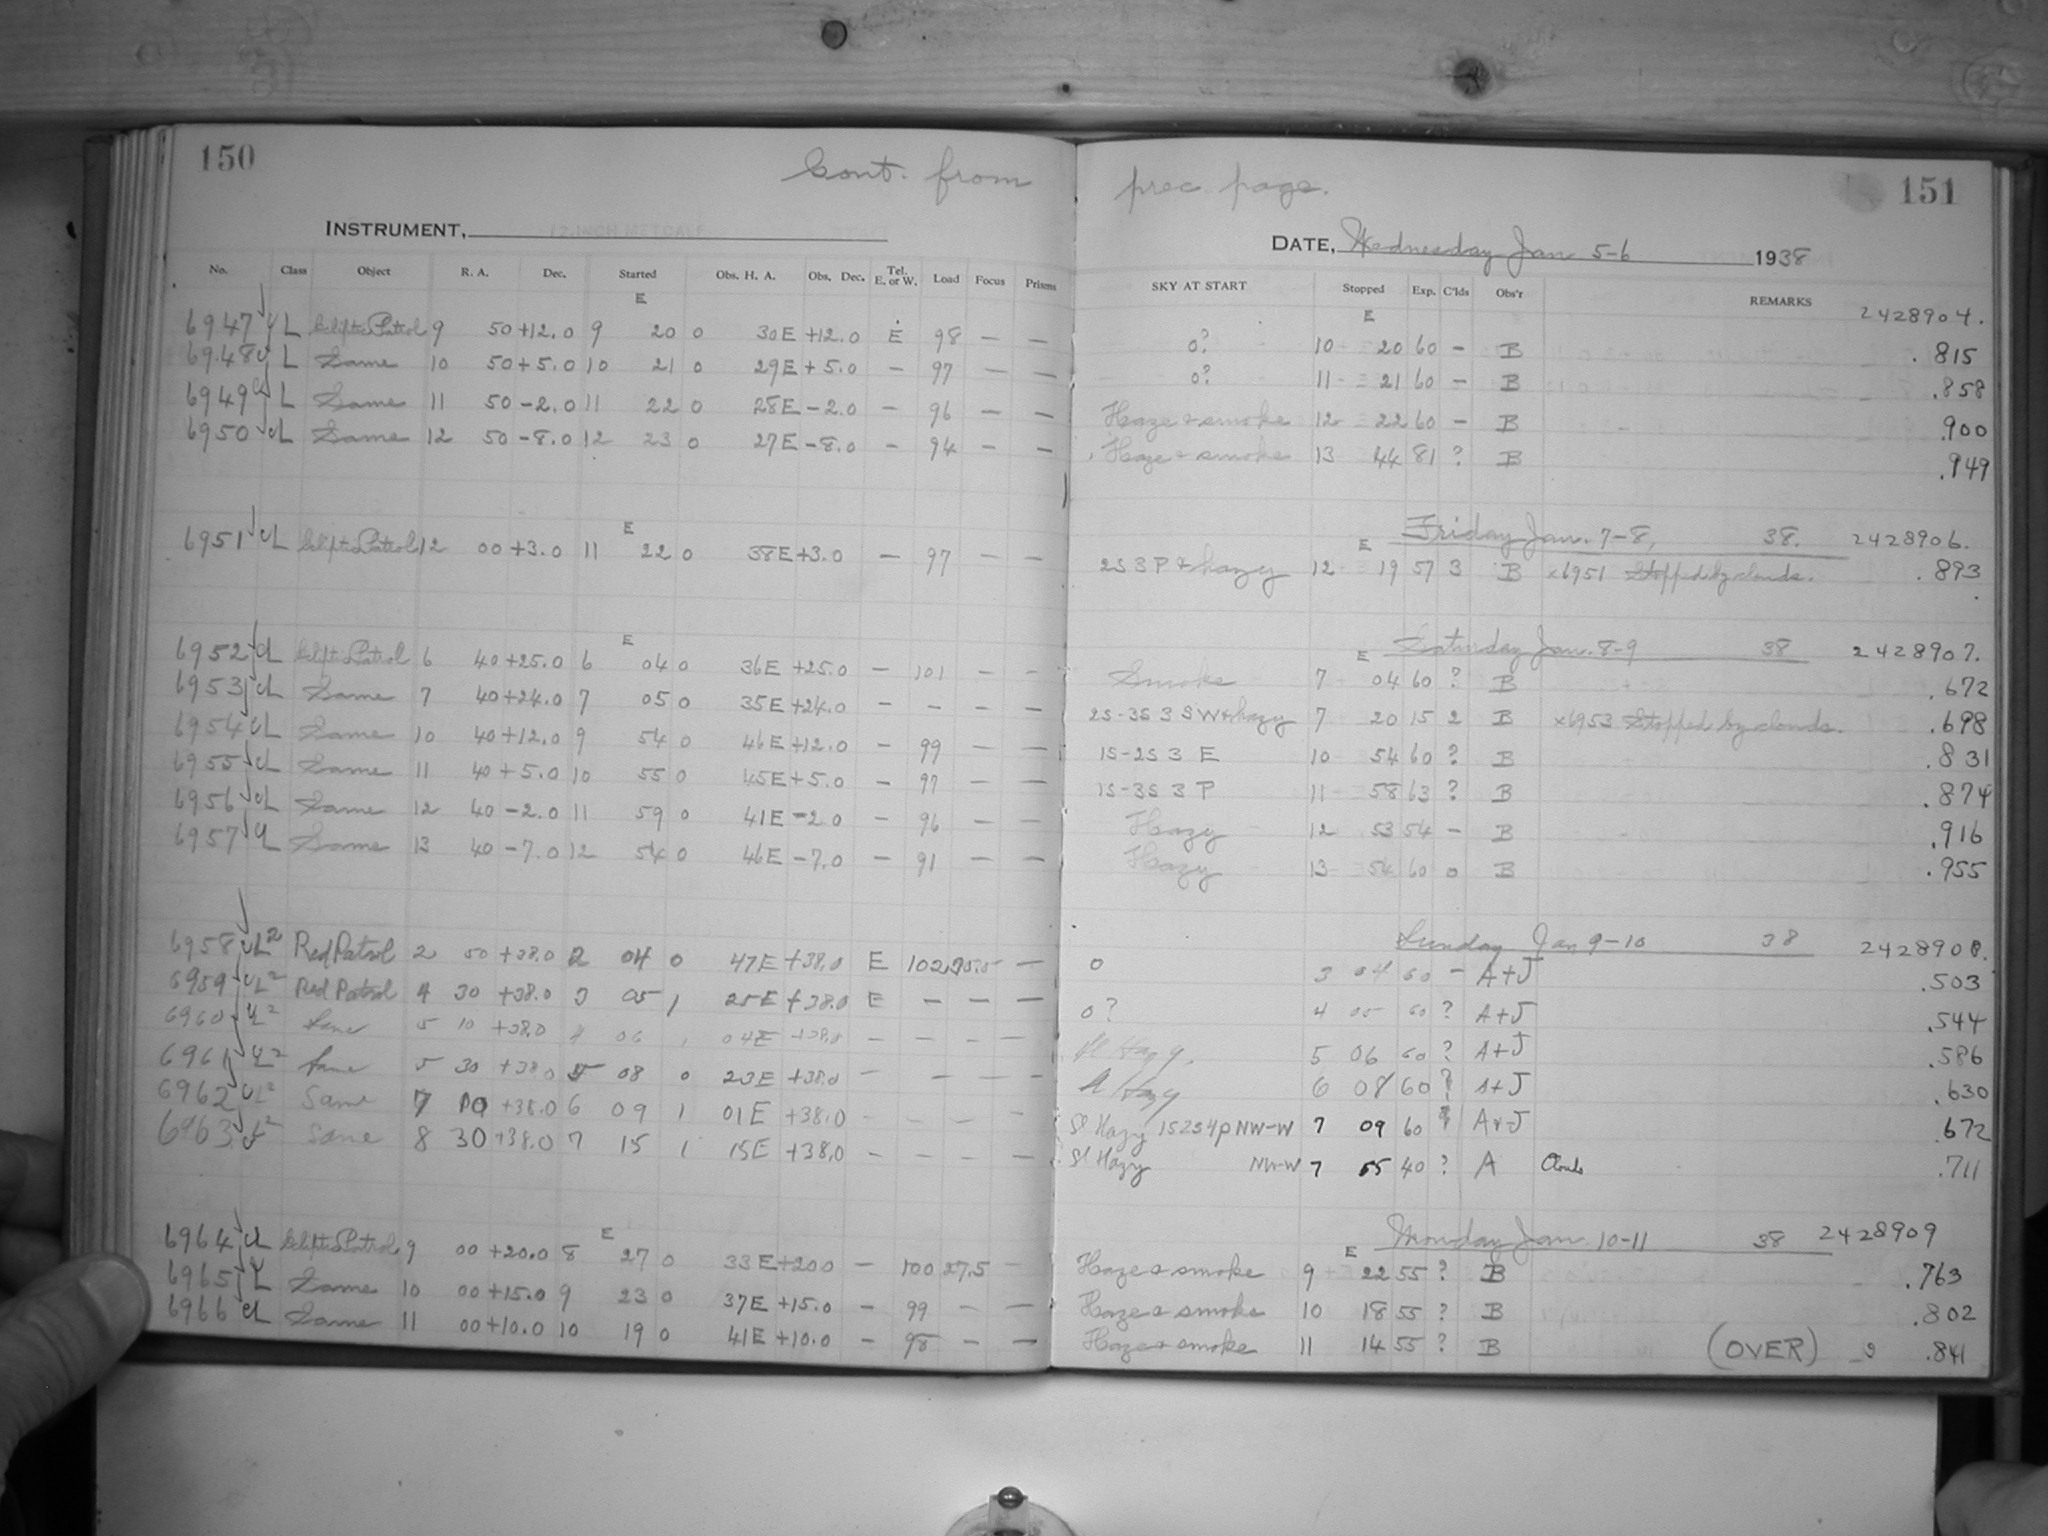 150
Cont. from
INSTRUMENT,
No. Class Object R. A. Dec. Started Obs. H. A. Obs. Dec. Tel. E. or W. Load Focus Prisms
E
6947 L Ecliptic Patrol 9 50 +12.0 9 20 0 30E +12.0 E 98 — —
6948 L Same 10 50 +5.0 10 21 0 29E +5.0 — 97 — —
6949 L Same 11 50 -2.0 11 22 0 28E -2.0 — 96 — —
6950 L Same 12 50 -8.0 12 23 0 27E -8.0 — 94 — —
E
6951 L Ecliptic Patrol 12 00 +3.0 11 22 0 38E +3.0 — 97 — —
E
6952 L Ecliptic Patrol 6 40 +25.0 6 04 0 36E +25.0 — 101 — —
6953 L Same 7 40 +24.0 7 05 0 35E +24.0 — — — —
6954 L Same 10 40 +12.0 9 54 0 46E +12.0 — 99 — —
6955 L Same 11 40 +5.0 10 55 0 45E +5.0 — 97 — —
6956 L Same 12 40 -2.0 11 59 0 41E -2.0 — 96 — —
6957 L Same 13 40 -7.0 12 54 0 46E -7.0 — 91 — —
6958 L2 Red Patrol 2 50 +38.0 2 04 0 47E +38.0 E 102 —
6959 L2 Red Patrol 4 30 +38.0 3 05 1 25E +38.0 E — — —
6960 L2 Same 5 10 +38.0 4 06 1 04E +38.0 — — — —
6961 L2 Same 5 30 +38.0 5 08 0 23E +38.0 — — — —
6962 L2 Same 7 10 +38.0 6 09 1 01E +38.0 — — —
6963 L2 Same 8 30 +38.0 7 15 1 15E +38.0 — — — —
E
6964 L Ecliptic Patrol 9 00 +20.0 8 27 0 33E +20.0 — 100 27.5 —
6965 L Same 10 00 +15.0 9 23 0 37E +15.0 — 99 — —
6966 L Same 11 00 +10.0 10 19 0 41E +10.0 — 98 — —
prec. page.
151
DATE, Wednesday Jan 5-6 1938
SKY AT START Stopped Exp. C'lds Obs'r REMARKS
E 2428904.
0? 10 20 60 — B .815
0? 11 21 60 — B .858
Haze & smoke 12 22 60 — B .900
Haze & smoke 13 44 81 ? B .949
E Friday Jan. 7-8, 38. 2428906.
2S 3 P & hazy 12 19 57 3 B x6951 Stopped by clouds. .893
E Saturday Jan. 8-9 38 2428907.
Smoke 7 04 60 ? B .672
2S-3S 3 SW & hazy 7 20 15 2 B x6953 Stopped by clouds. .698
1S-2S 3 E 10 54 60 ? B .831
1S-3S 3 P 11 58 63 ? B .874
Hazy 12 53 54 — B .916
Hazy 13 54 60 0 B .955
Sunday Jan 9-10 38 2428908.
0 3 04 60 — A+J .503
0? 4 05 60 ? A+J .544
Sl Hazy. 5 06 60 ? A+J .586
Sl Hazy 6 08 60 ? A+J .630
Sl Hazy 1S2S4P NW-W 7 09 60 ? A+J .672
Sl Hazy NW-W 7 55 40 ? A Clouds .711
E Monday Jan 10-11 38 2428909
Haze & smoke 9 22 55 ? B .763
Haze & smoke 10 18 55 ? B .802
Haze & smoke 11 14 55 ? B (OVER) .841